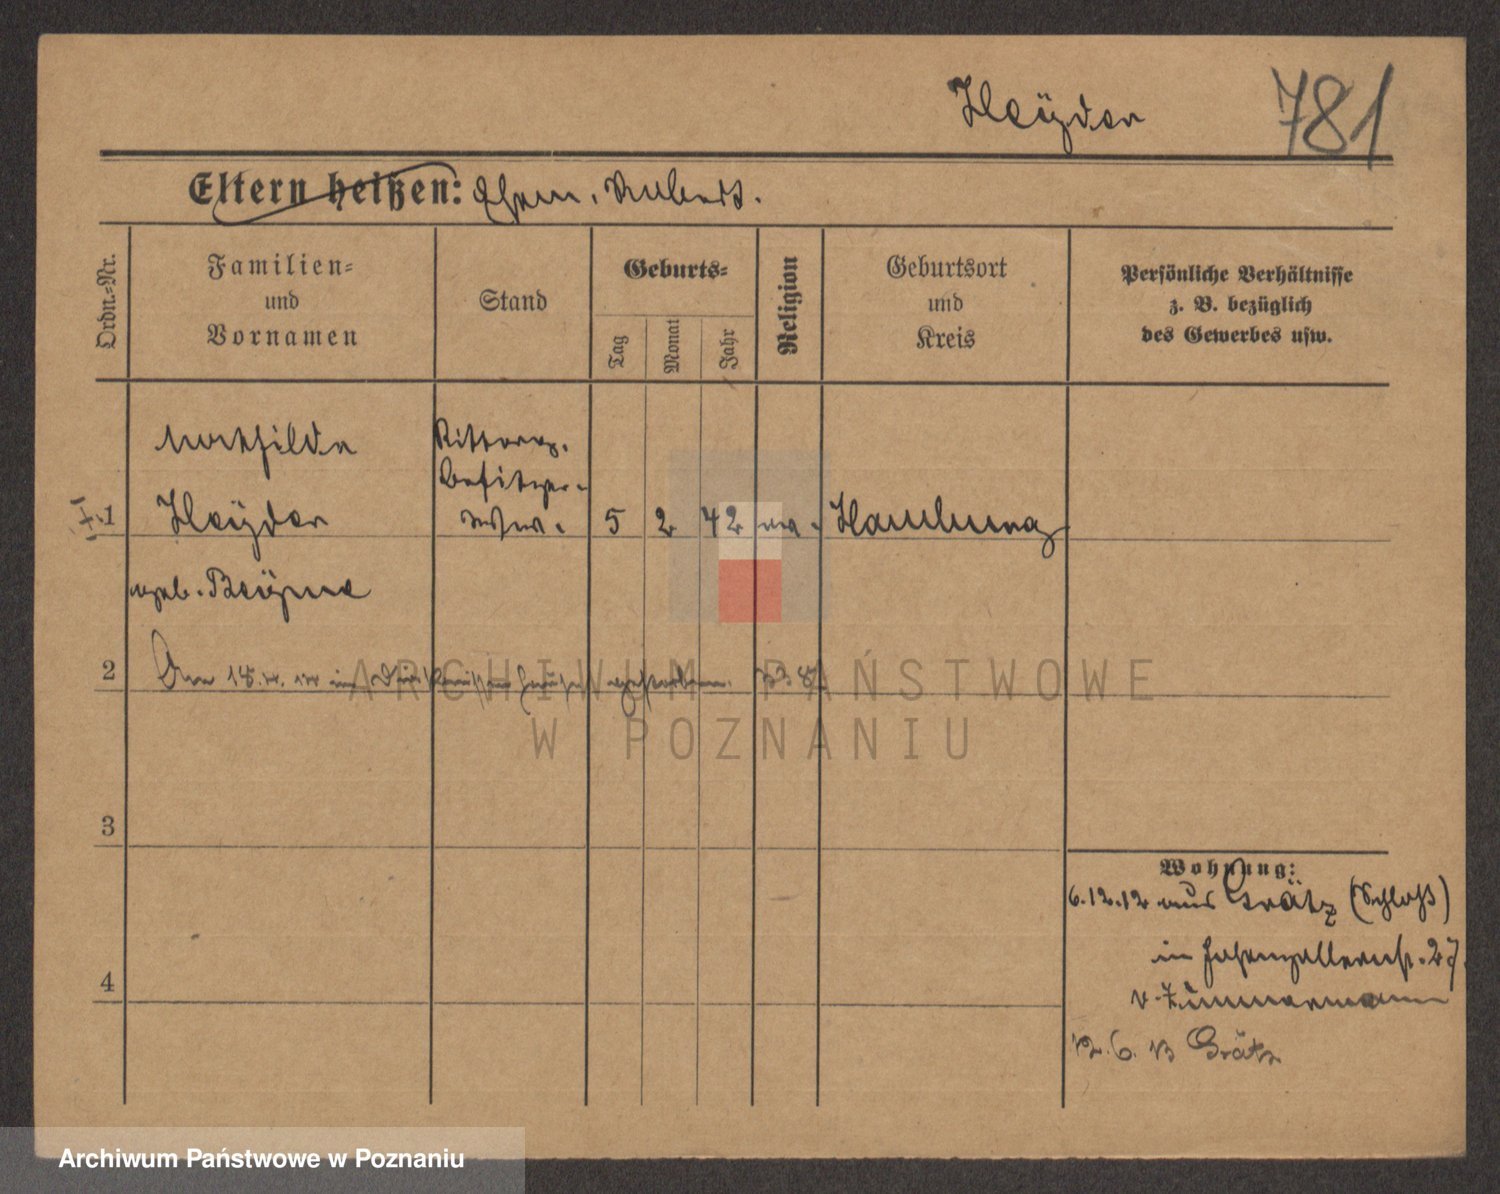 Heÿder 781
Eltern heißen: Ehem. Rubert.
Ordn.-Nr.
Familien-
und
Vornamen
Stand
Geburts-
Tag
Monat
Jahr
Religion
Geburtsort
und
Kreis
Persönliche Verhältnisse
z. B. bezüglich
des Gewerbes usw.
Mathilde
Ritterg.
besitzer-
1 Heÿder
5 2 42 ev. Hamburg
geb.
2 Am 15. im Diakonissenhause gestorben.
ARCHIWUM PAŃSTWOWE
W POZNANIU
3
4
Wohnung:
6.12.12 aus Grätz (Schloß)
in Hohenzollernstr. 27.
b. Zimmermann
12.6.13 Grätz
Archiwum Państwowe w Poznaniu